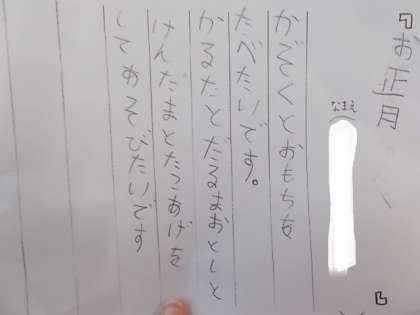 「お正月」
なまえ
かぞくとおもちを
たべたいです。
かるたとだるまおとしと
けんだまとたこあげを
してあそびたいです